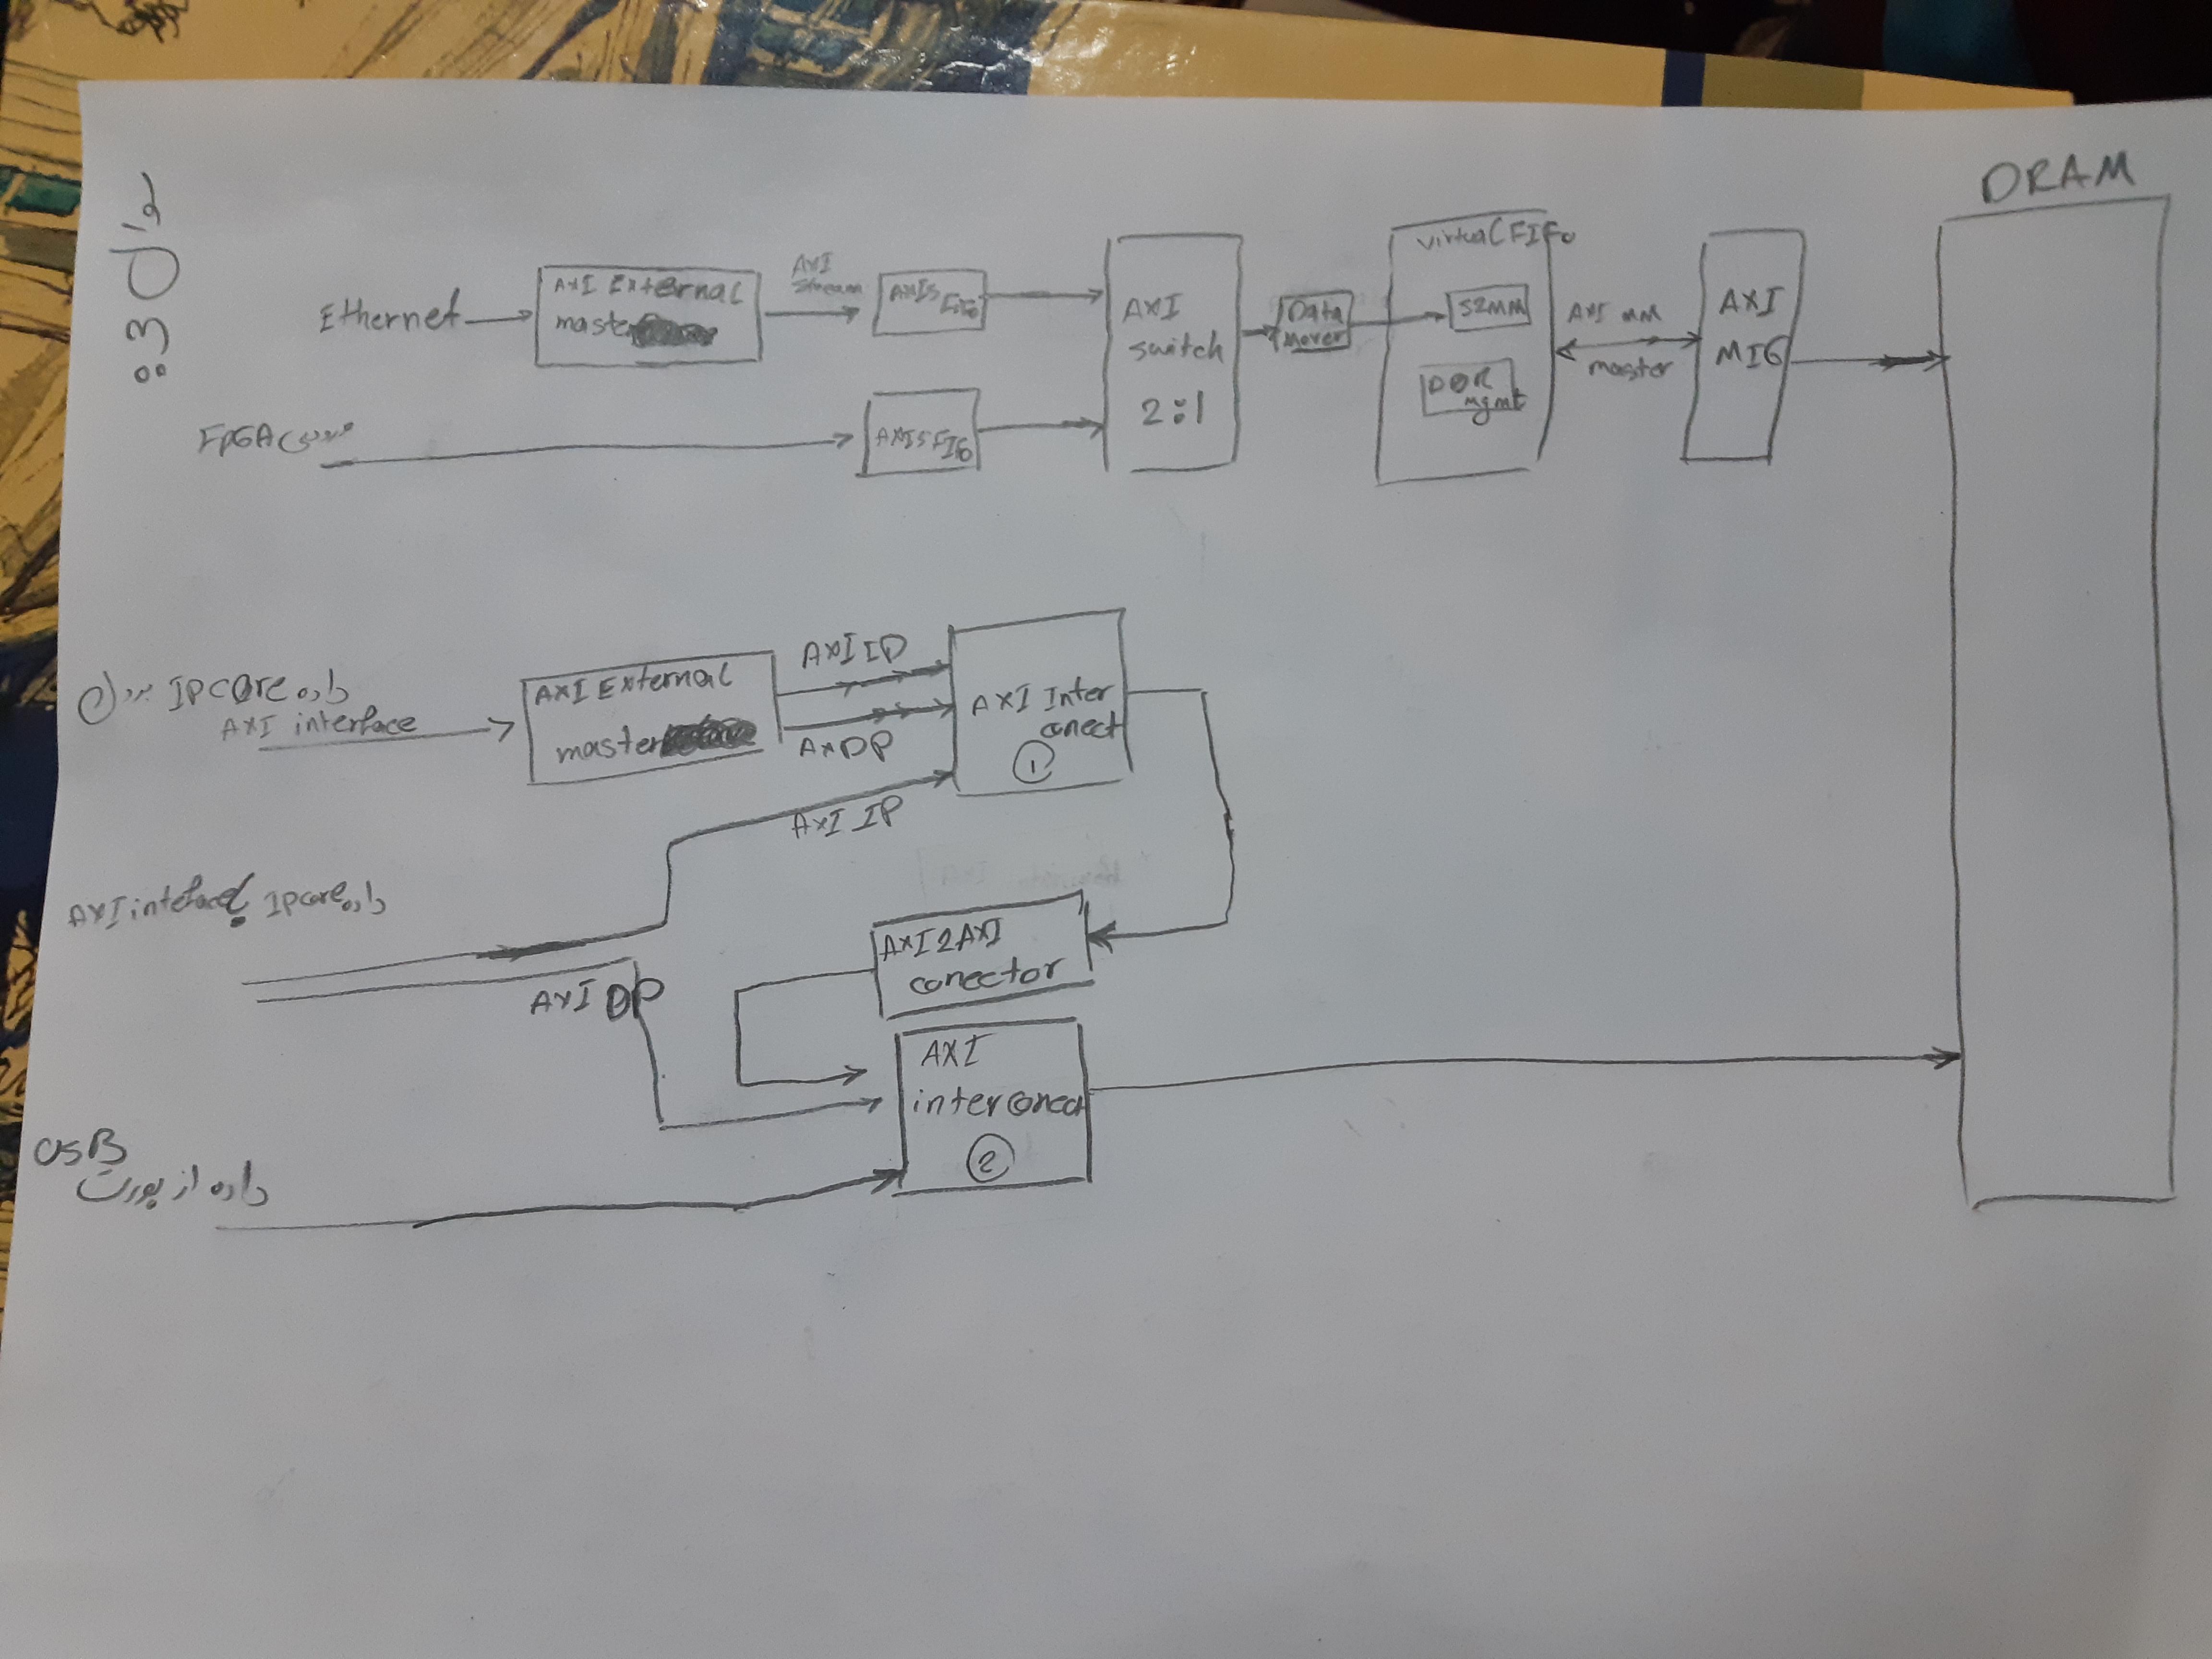 DRAM
Ethernet
AXI External
master
AXI
Stream
AXIS Fifo
AXI
switch
2:1
Data
Mover
Virtual FIFO
S2MM
DDR
mgmt
AXI MM
master
AXI
MIG
FPGA
AXIS Fifo
IPCore داده
AXI interface
AXI External
master
AXI IP
AXI DP
AXI Inter
conect
1
AXI interface IPcore داده
AXI IP
AXI DP
AXI2AXI
conector
AXI
interconect
2
USB
داده از